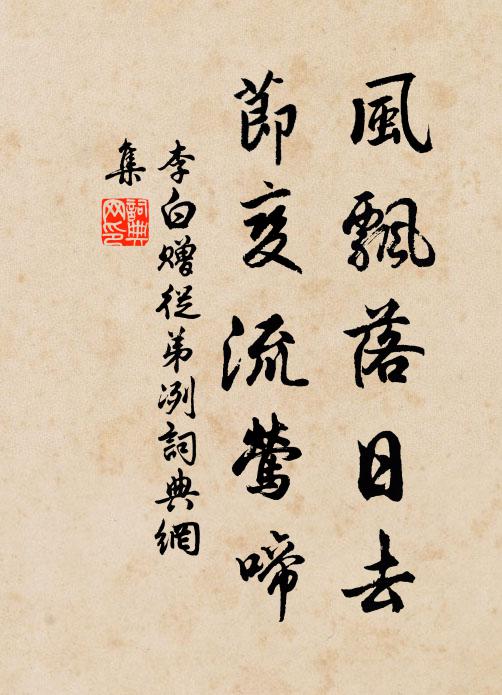 風飄落日去
節变流鶯啼
李白贈從弟冽詞典網
集
詞典
网印